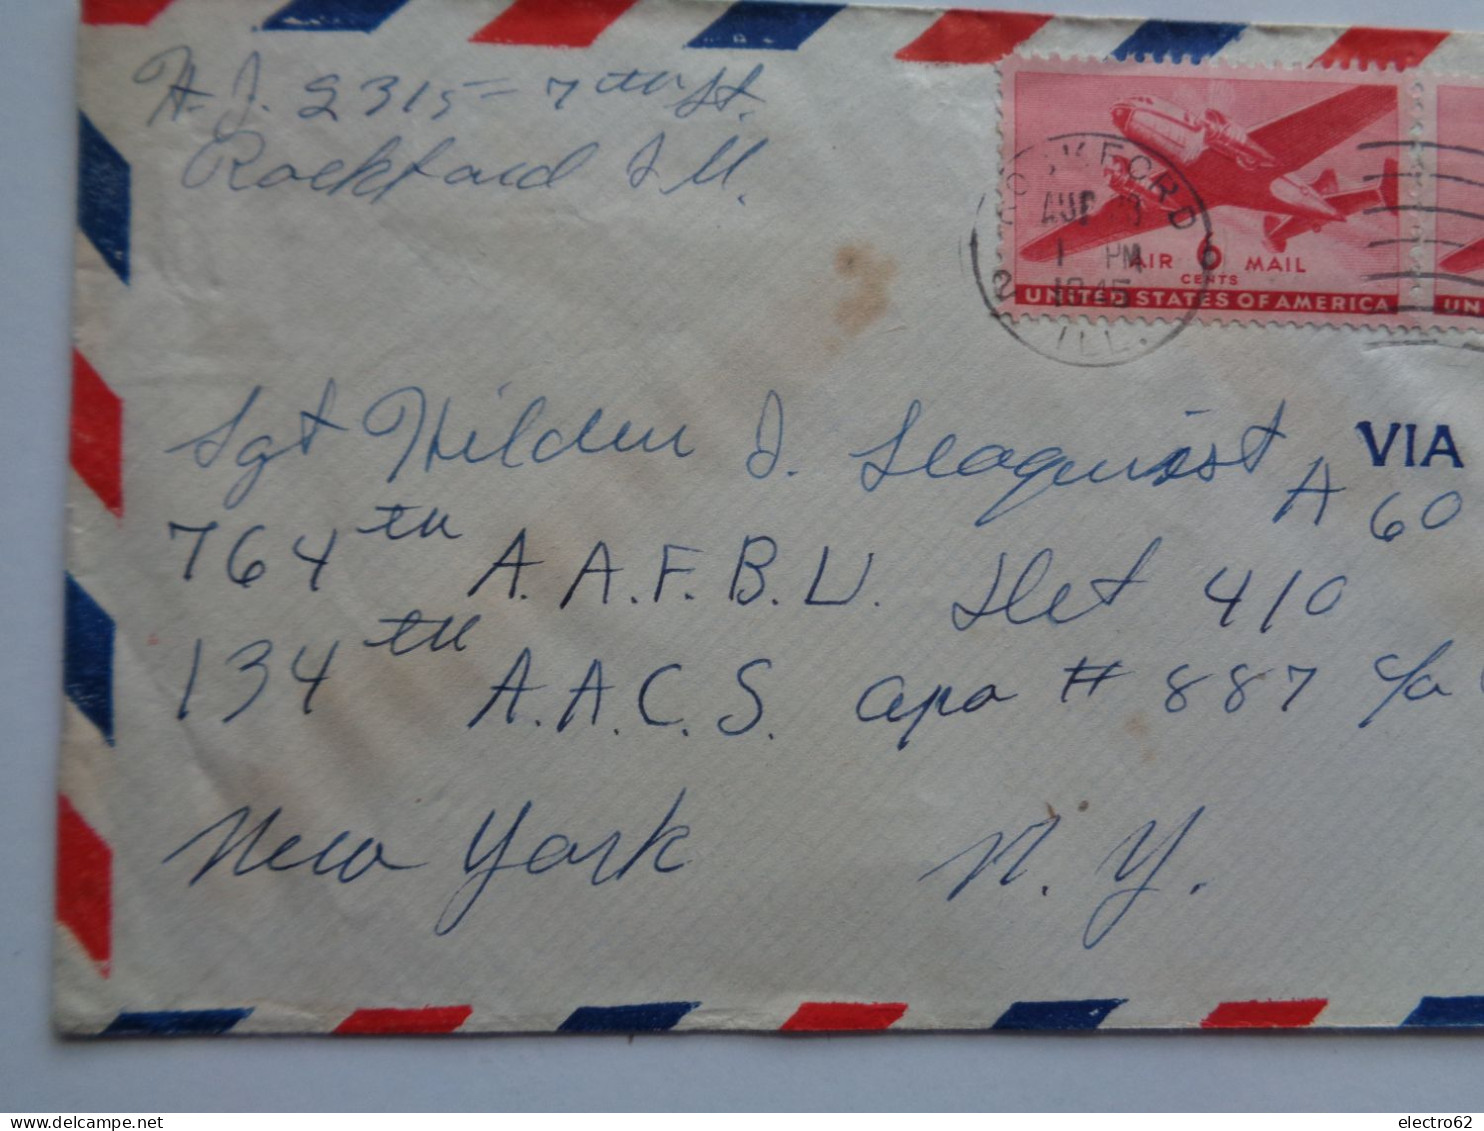 H. J. 2315 - 7th St.
Rockford Ill.
ROCKFORD
AUG
1 PM
1945
2
ILL.
AIR 6 MAIL
CENTS
UNITED STATES OF AMERICA
UN
Sgt Hilden J. Seaquist
VIA
A 60
764th A.A.F.B.U. Det 410
134th A.A.C.S. apo # 887 c/o
New York N.Y.
electro62